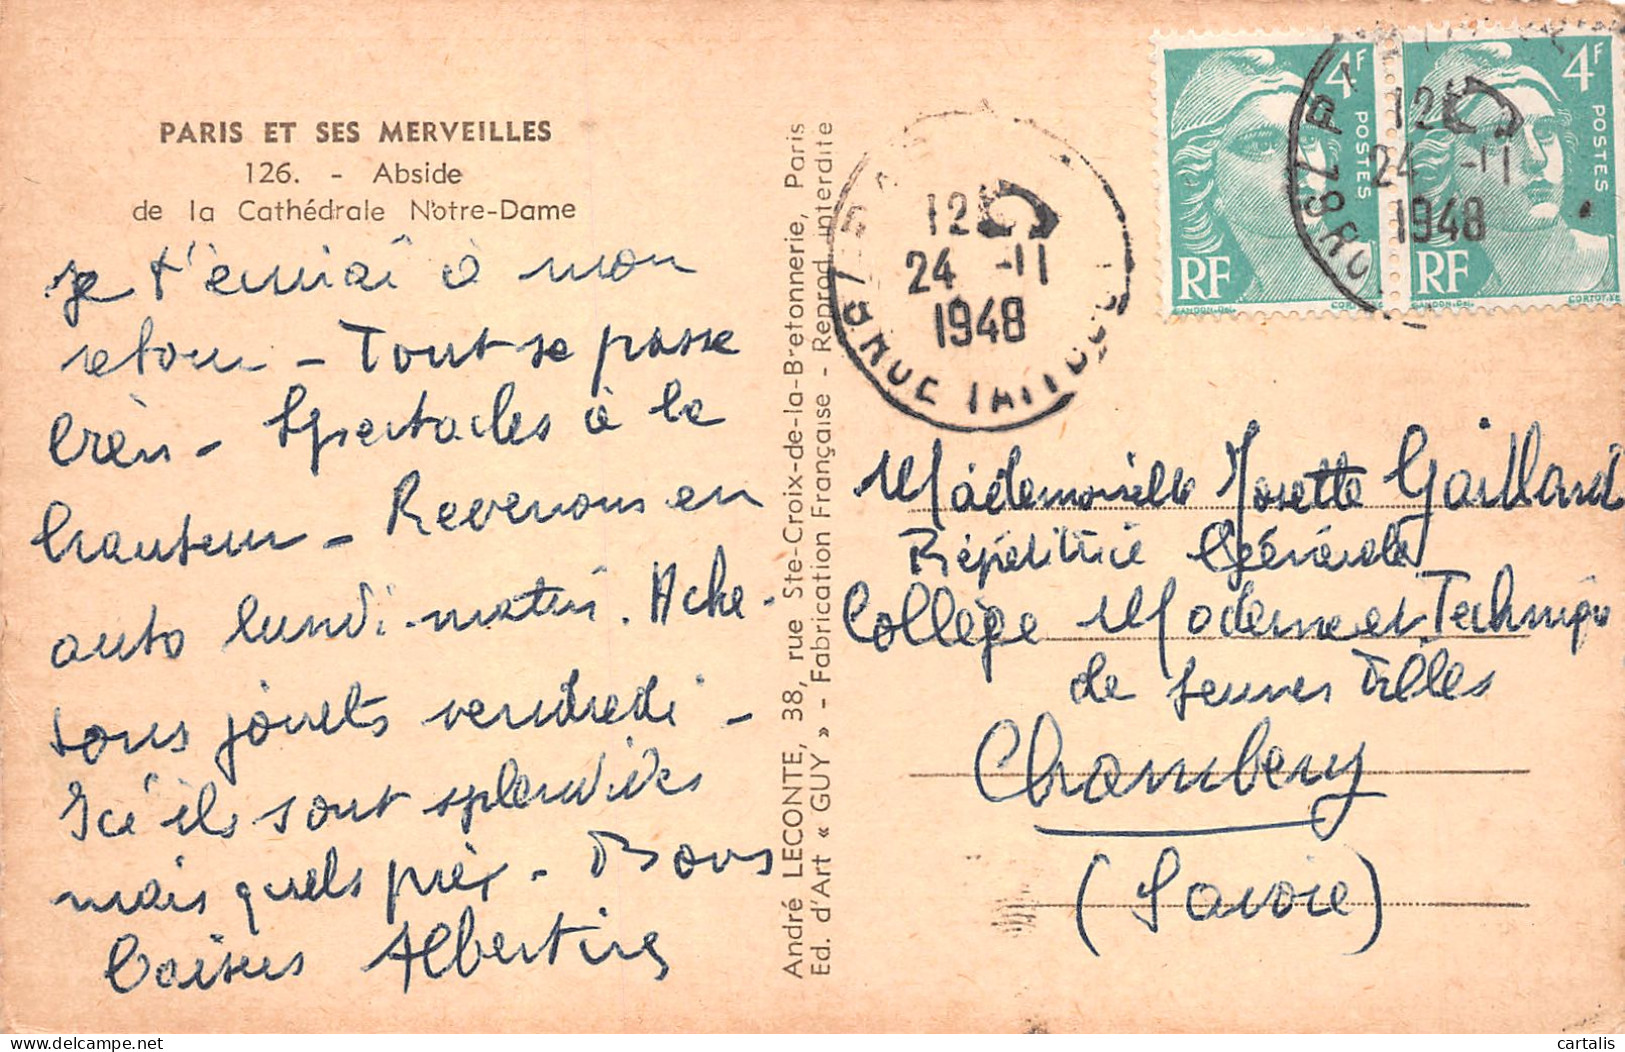 PARIS ET SES MERVEILLES
126. - Abside
de la Cathédrale Notre-Dame
Je t'écrirai à mon
retour - Tout se passe
bien - Spectacles à la
hauteur - Revenons en
auto lundi matin. Ache-
tons jouets vendredi -
Ici ils sont splendides
mais quels prix - Bons
baisers Albertine
André LECONTE, 38, rue Ste-Croix-de-la-Bretonnerie, Paris
Ed. d'Art « GUY » - Fabrication Française - Reprod. interdite
12
24 -11
1948
4F
POSTES
RF
GANDON.DEL.
4F
POSTES
RF
GANDON.DEL.
CORTOT.SC
12
24 -11
1948
Mademoiselle Josette Gaillard
Répétitrice Générale
Collège Moderne et Techniqu
de Jeunes Filles
Chambery
(Savoie)
cartalis
delcampe.net